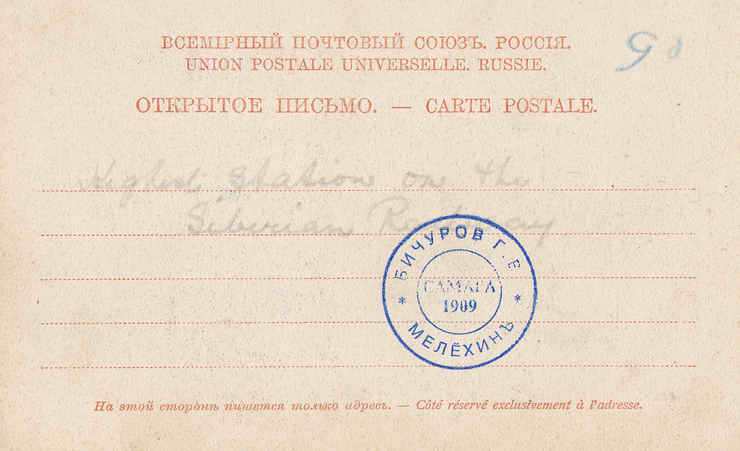 ВСЕМІРНЫЙ ПОЧТОВЫЙ СОЮЗЪ. РОССІЯ.
UNION POSTALE UNIVERSELLE. RUSSIE.
ОТКРЫТОЕ ПИСЬМО. — CARTE POSTALE.
Highest Station on the
Siberian Railway
БИЧУРОВ Г. Е
САМАГА
1909
* МЕЛЁХИНЪ *
На этой сторонѣ пишется только адресъ. — Côté réservé exclusivement à l'adresse.